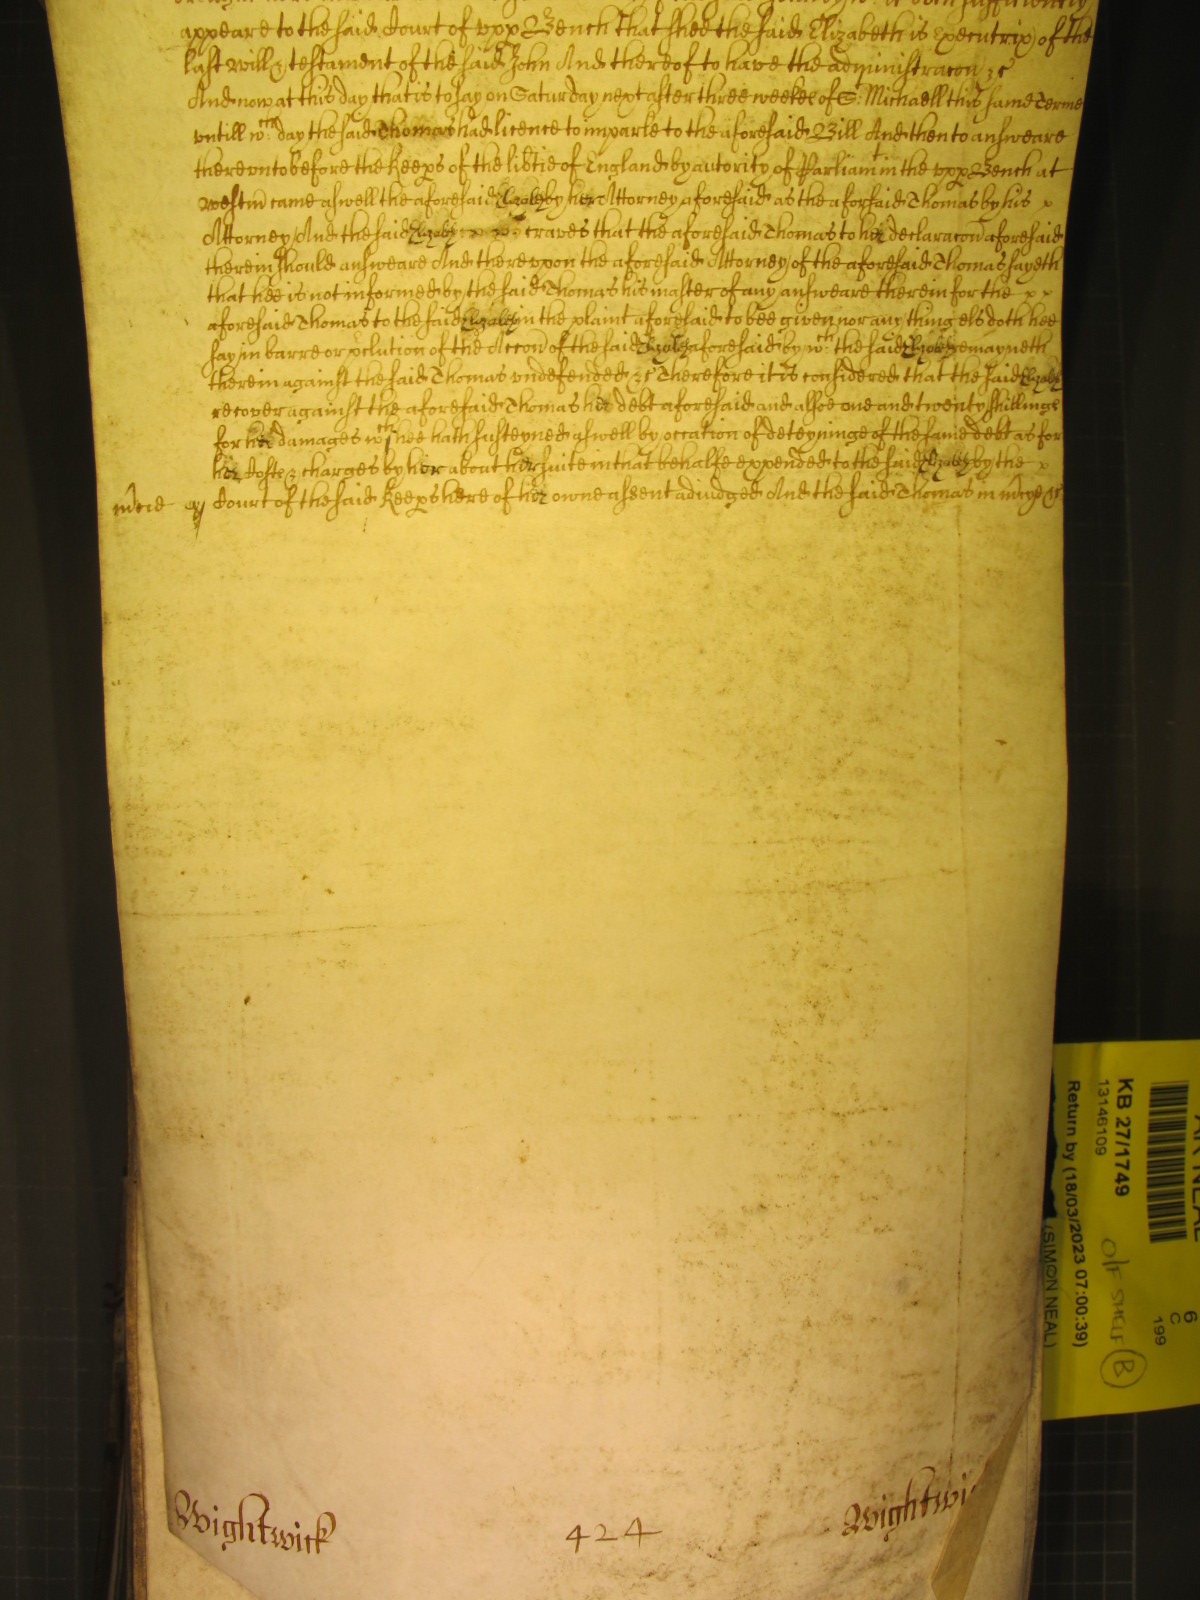 appeare to the said Court of vpp Bench that shee the said Elizabeth is Executrix of the
last will & testament of the said John And thereof to have the administracon &c
And now at this day that is to say on Saturday next after three weekes of S: Michaell this same Terme
vntill wch day the said Thomas had licence to imparle to the aforesaid Bill And then to answeare
therevnto before the Keeps of the libtie of England by autority of Parliamt in the vpp Bench at
westm came aswell the aforesaid Elizabeth by her Attorney aforesaid as the aforsaid Thomas by his x
Attorney And the said Elizabeth craves that the aforesaid Thomas to her declaracon aforesaid
therein should answeare And therevpon the aforesaid Attorney of the aforesaid Thomas sayeth
that hee is not informed by the said Thomas his master of any answeare therein for the x x
aforesaid Thomas to the said Elizabeth in the plaint aforesaid to bee given nor any thing els doth hee
say in barre or p̱clution of the Accon of the said Elizabeth aforesaid by wch the said Elizabeth remayneth
therein against the said Thomas vndefended &c Therefore it is considered that the said Elizabeth
recover against the aforesaid Thomas her debt aforesaid and alsoe one and twenty shillings
for her damages wch shee hath susteyned aswell by occation of deteyninge of the same debt as for
her Costs & charges by her about her suite in that behalfe expended to the said Elizabeth by the x
mcie Court of the said Keeps here of her owne assent adiudged And the said Thomas in mcye &c
Wightwick 424 Wightwi
KB 27/1749
13146109
Return by (18/03/2023 07:00:39)
(SIMON NEAL)
O/F SHELF B
6
C
199